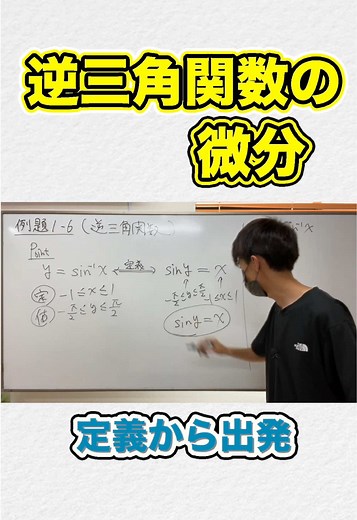 逆三角関数の
微分
例題1-6 (逆三角関数
Point
y = sin⁻¹x ⟷ 定義 sin y = x
定 -1≤x≤1
-π/2≤y≤π/2 -1≤x≤1
値 -π/2≤y≤π/2
sin y = x
定義から出発